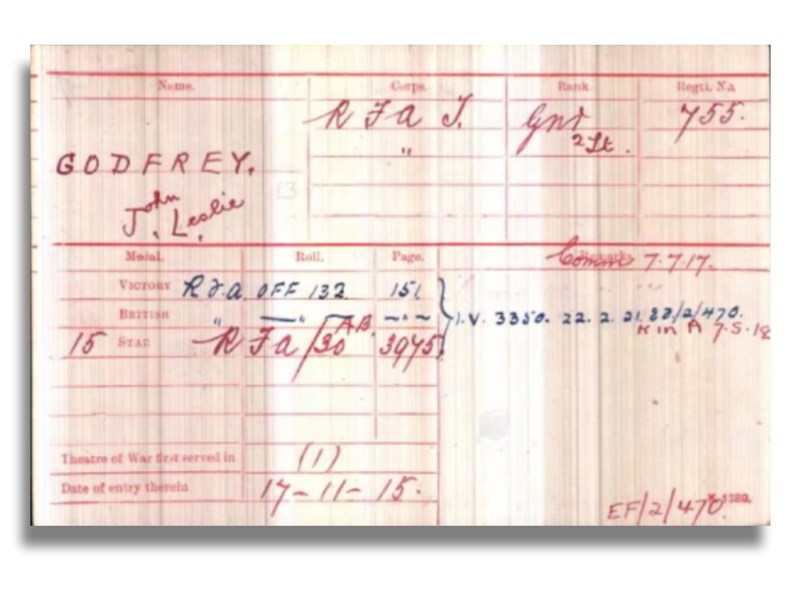 Name. Corps. Rank Regtl. No.
R F A T. Gnr 755.
" 2 Lt.
GODFREY.
John
J. Leslie
Medal. Roll. Page. Remarks
Comm 7.7.17.
VICTORY R.F.A. OFF 132 151
BRITISH " — " — " — I.V. 3350. 22. 2. 21. EF/2/470.
K in A 7.5.18
15 STAR R F A /30 AB. 3945
Theatre of War first served in (1)
Date of entry therein 17-11-15.
EF/2/470. K 1380.